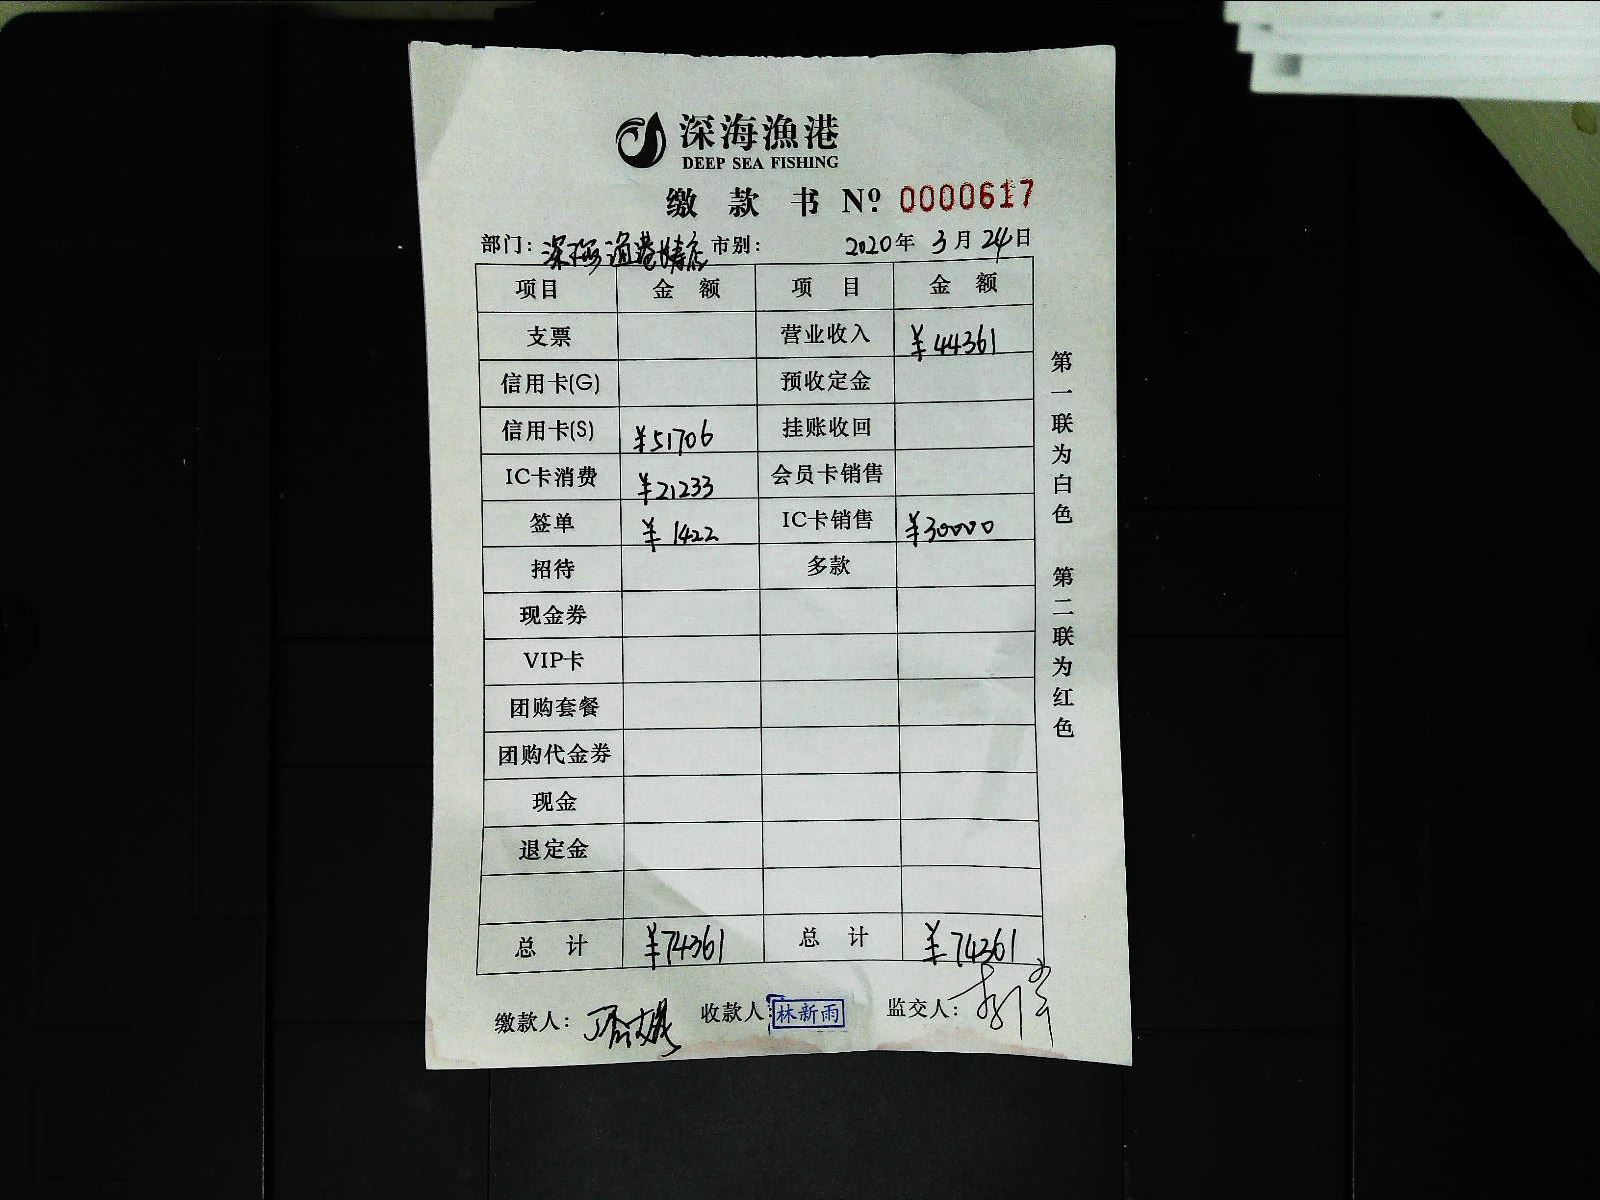 深海漁港
DEEP SEA FISHING
缴款书 Nº 0000617
部门: 深海渔港 市别: 2020年3月24日
项目 金额 项目 金额
支票 营业收入 ¥44361
信用卡(G) 预收定金
信用卡(S) ¥51706 挂账收回
IC卡消费 ¥21233 会员卡销售
签单 ¥1422 IC卡销售 ¥30000
招待 多款
现金券
VIP卡
团购套餐
团购代金券
现金
退定金
总计 ¥74361 总计 ¥74361
缴款人: 收款人: 林新雨 监交人:
第一联为白色 第二联为红色